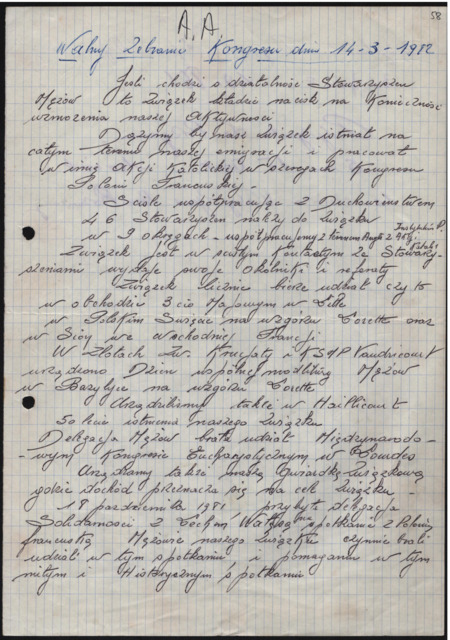 58
A.A.
Walny Zebranie Kongresu dnia 14-3-1982
Jeśli chodzi o działalność Stowarzyszeń
Mężów to Związek kładzie nacisk na Konieczność
wzmożenia naszej Aktywności
Dążymy by nasz Związek istniał na
całym terenie naszej emigracji i pracował
w imię Akcji Katolickiej w szeregach Kongresu
Polonii Francuskiej -
Ściśle współpracując z Duchowieństwem
46 Stowarzyszeń należy do Związku
w 9 okręgach - współpracujemy z
Związek jest w ścisłym Kontakcie ze Stowarzy-
szeniami wydaje swoje okólniki i referaty
Związek licznie bierze udział czy to
w obchodzie 3cio Majowym w Lille
w Polskim Święcie na wzgórzu Lorette oraz
w Sion we Wschodniej Francji
W Zlotach Krucjaty i KSMP Vaudricourt
urządzono Dzień wspólnej modlitwy Mężów
w Bazylice na wzgórzu Lorette
Urządziliśmy także w Haillicourt
50 lecie istnienia naszego Związku
Delegacja Mężów brała udział Międzynarodo-
wym Kongresie Eucharystycznym w Lourdes
Urządzamy także naszą Związkową
gdzie dochód przeznacza się na cele Związku -
18 października 1981 przybyła delegacja
Solidarności z Lechem Wałęsą na spotkanie z Polonią
francuską Mężowie naszego Związku czynnie brali
udział w tym spotkaniu i pomagali w tym
miłym i Historycznym spotkaniu